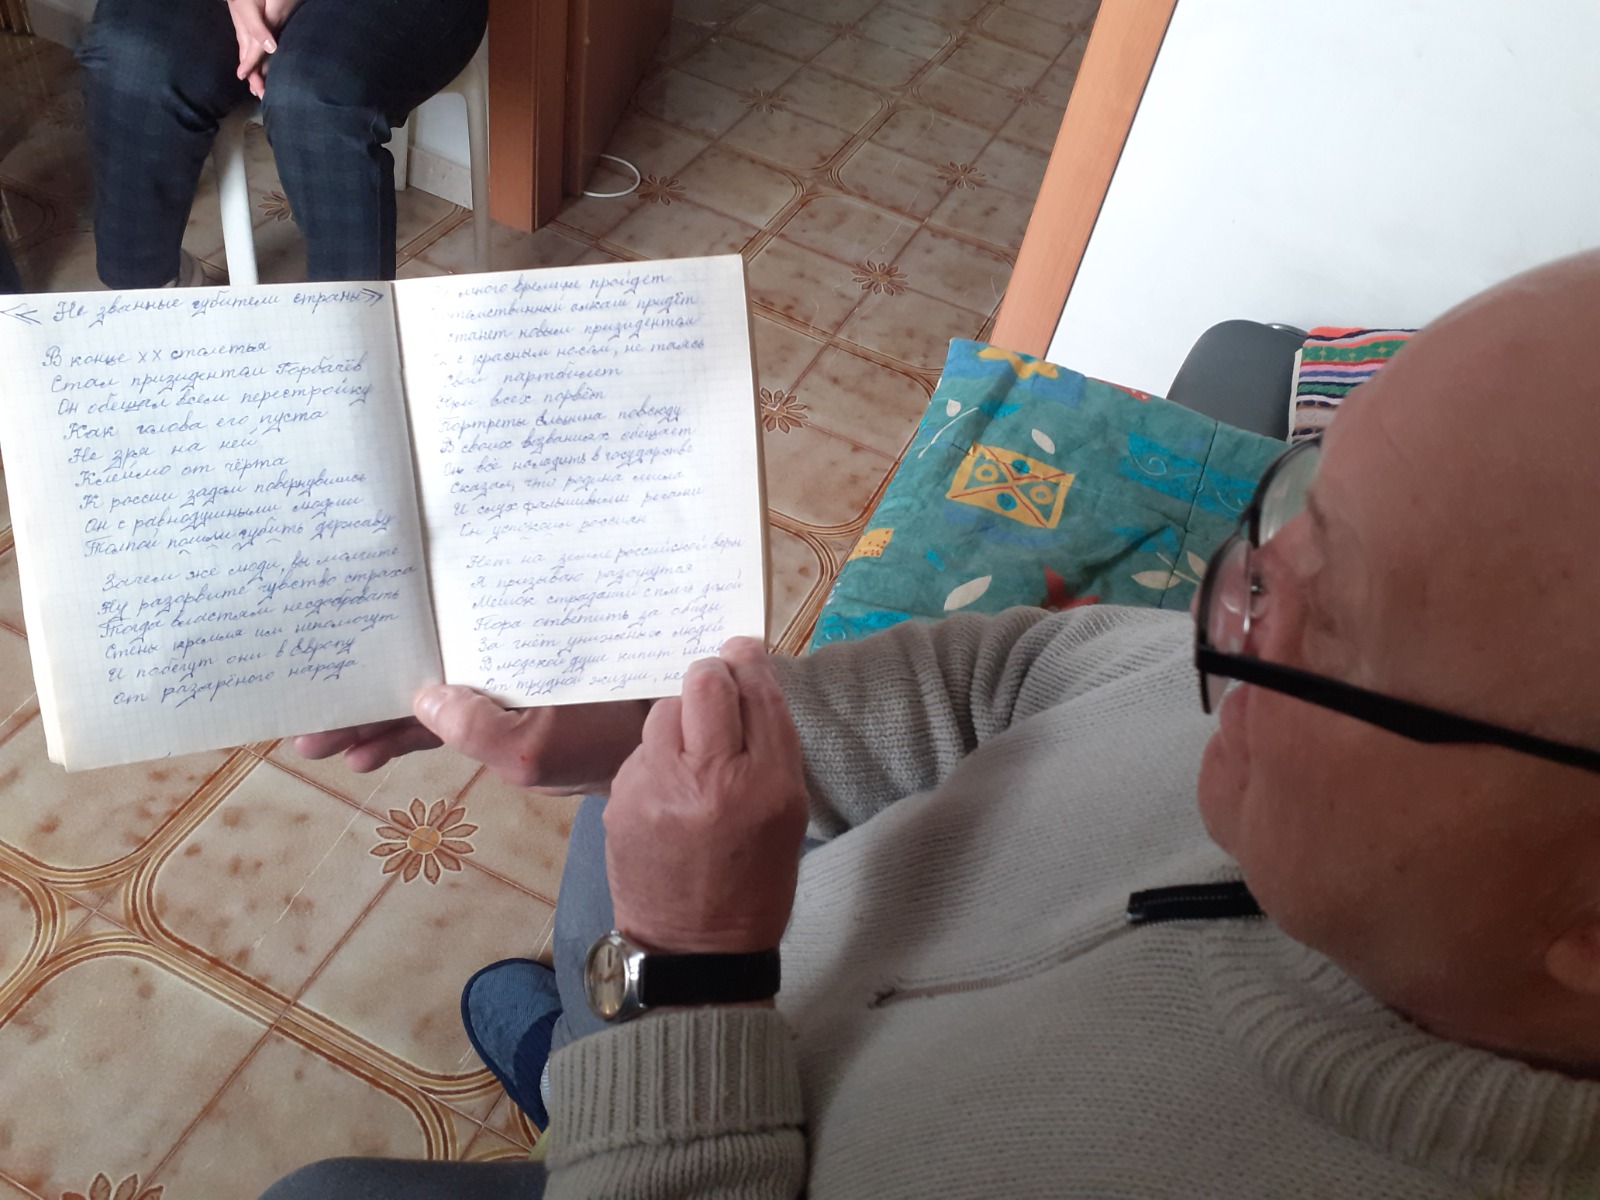 Не званные губители страны
В конце XX столетья
Стал призидентом Горбачёв
Он обещал всем перестройку
Как голова его пуста
Не зря на ней
Клеймо от чёрта
К россии задом повернувшись
Он с равнодушными людми
Толпой пошли губить державу
Зачем же люди, вы молчите
Ну разорвите чувство страха
Тогда властям несдобровать
Стены кремля им непомогут
И побегут они в Европу
От разарёного народа.
много времени пройдет
алкаш придёт
станет новым призидентом
с красным носом, не таясь
Свой партбилет
всех порвёт
Портреты ельцина повсюду
В своих возваниях обещает
Он всё наладить в государстве
Сказал, что родина
И слух фальшивыми речами
Он успокоил россиян
Нет на земле российской веры
Я призываю разогнутся
Мешок страданий с плеч долой
Пора ответить за обиды
За гнёт униженых людей
В людской душе кипит
От трудной жизни,